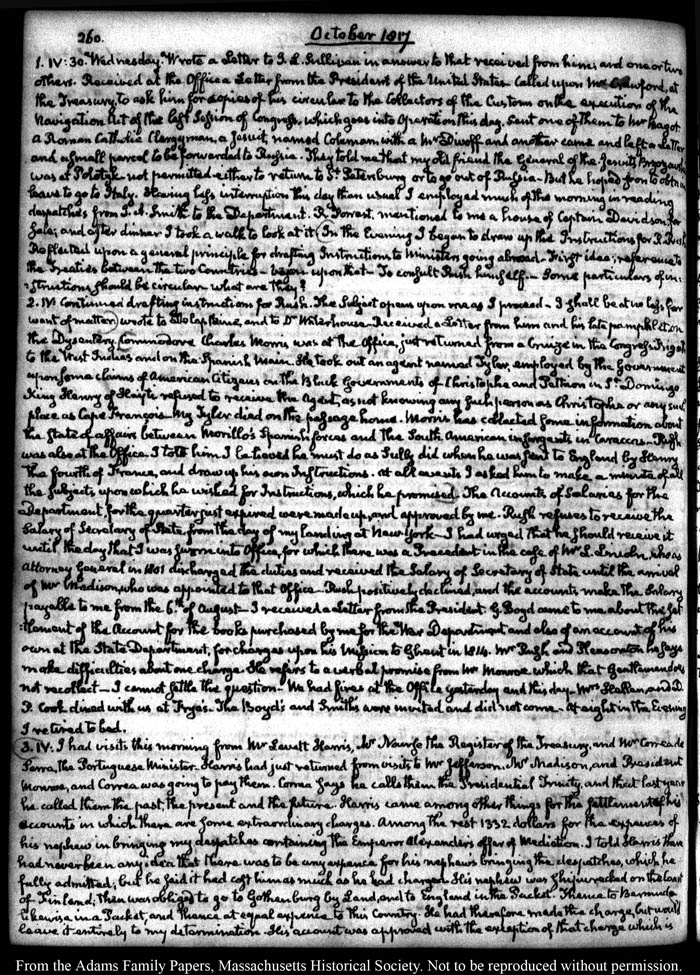 260. October 1817
1. IV:30. Wednesday. Wrote a Letter to J. L. Sullivan in answer to that received from him; and one or two
others. Received at the Office a Letter from the President of the United States. Called upon Mr Crawford, at
the Treasury, to ask him for copies of his circular to the Collectors of the Customs on the execution of the
Navigation Act of the last Session of Congress, which goes into Operation this day. Sent one of them to Mr Bagot.
a Roman Catholic Clergyman, a Jesuit, named Coleman, with a Mr Divoff and another came and left a Letter
and a small parcel to be forwarded to Russia. They told me that my old friend the General of the Jesuits
was at Polotzk not permitted either to return to St Petersburg or to go out of Russia. But he hoped soon to obtain
leave to go to Italy. Having less interruption this day than usual I employed much of the morning in reading
despatches from J. A. Smith to the Department. R. Forrest, mentioned to me a house of Captain Davidson, for
Sale; and after dinner I took a walk to look at it. In the Evening I began to draw up the Instructions for R. Rush
Reflected upon a general principle for drafting Instructions to Ministers going abroad. First idea; reference to
the Treaties between the two Countries — began upon that — To consult Rush himself — Some particulars of in-
structions should be circular. what are they?
2. IV. Continued drafting instructions for Rush. The Subject opens upon me as I proceed — I shall be at no loss for
want of matter; wrote to Delaplaine, and to Dr Waterhouse. Received a Letter from him and his late pamphlet on
the Dysentery. Commodore Charles Morris was at the Office, just returned from a Cruize in the Congress Frigate
to the West Indies and on the Spanish Main. He took out an agent named Tyler, employed by the Government
upon some claims of American Citizens on the Black Governments of Christophe and Pethion in St. Domingo
King Henry of Hayti refused to receive the Agent, as not knowing any such person as Christophe or any such
place as Cape François. Mr Tyler died on the passage home. Morris has collected some information about
the State of affairs between Morillo's Spanish forces and the South American insurgents in Caraccas. Rush
was also at the Office. I told him I believed he must do as Sully did when he was sent to England by Henry
the fourth of France, and draw up his own Instructions. At all events I asked him to make a minute of all
the Subjects upon which he wished for Instructions, which he promised. The Accounts of Salaries for the
Department, for the quarter just expired were made up, and approved by me. Rush refuses to receive the
Salary of Secretary of State, from the day of my landing at New York — I had urged that he should receive it
until the day that I was sworn into Office, for which there was a Precedent in the case of Mr L. Lincoln, who as
Attorney General in 1801 discharged the duties and received the Salary of Secretary of State until the arrival
of Mr Madison, who was appointed to that Office. Rush positively declined, and the accounts make the Salary
payable to me from the 6th of August — I received a Letter from the President. G. Boyd came to me about the set-
tlement of the Account for the books purchased by me for the War Department and also of an account of his
own at the State Department, for charges upon his Mission to Ghent in 1814. Mr Rush and Pleasonton he says
make difficulties about one charge. He refers to a verbal promise from Mr Monroe which that Gentleman does
not recollect — I cannot settle the question — We had fires at the Office yesterday and this day. Mrs and D.
P. Cook dined with us at Frye's. The Boyd's and Smiths were invited and did not come. At eight in the Evening
I retired to bed.
3. IV: I had visits this morning from Mr Levett Harris, Mr Nourse the Register of the Treasury, and Mr Correa de
Serra, the Portuguese Minister. Harris had just returned from visits to Mr Jefferson, Mr Madison, and President
Monroe, and Correa was going to pay them. Correa says he calls them the Presidential Trinity, and that last year
he called them the past, the present and the future. Harris came among other things for the settlement of his
accounts in which there are some extraordinary charges. Among the rest 1332 dollars for the expences of
his nephew in bringing my despatches containing the Emperor Alexanders offer of Mediation. I told Harris there
had never been any idea that there was to be any expence for his nephews bringing the despatches, which he
fully admitted; but he said it had cost him as much as he had charged. His nephew was shipwrecked on the coast
of Finland; then was obliged to go to Gothenburg by Land, and to England in the Packet. Thence to Bermuda
likewise in a Packet, and thence at equal expence to this Country. He had therefore made the charge, but would
leave it entirely to my determination. His account was approved with the exception of that charge which is
From the Adams Family Papers, Massachusetts Historical Society. Not to be reproduced without permission.